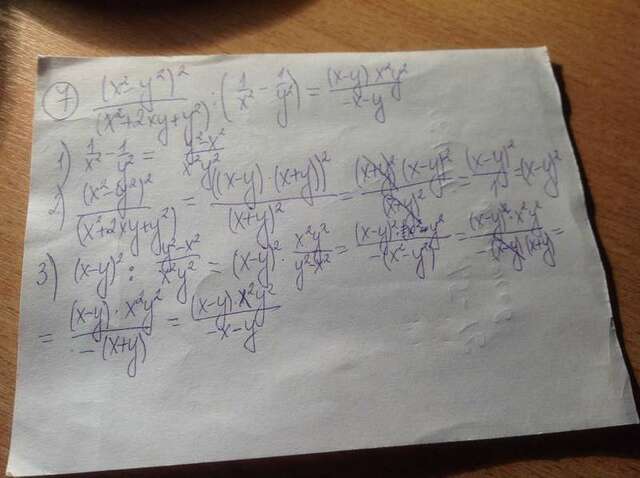 7 (x²-y²)²/(x²+2xy+y²) : (1/x² - 1/y²) = (x-y) x²y²/-x-y
1) 1/x² - 1/y² = y²-x²/x²y²
2) (x²-y²)²/(x²+2xy+y²) = ((x-y)·(x+y))²/(x+y)² = (x+y)²(x-y)²/(x+y)² = (x-y)²/1 = (x-y)²
3) (x-y)² : y²-x²/x²y² = (x-y)² · x²y²/y²-x² = (x-y)²·x²·y²/-(x²-y²) = (x-y)²·x²y²/-(x-y)(x+y) =
= (x-y)·x²y²/-(x+y) = (x-y)·x²y²/-x-y